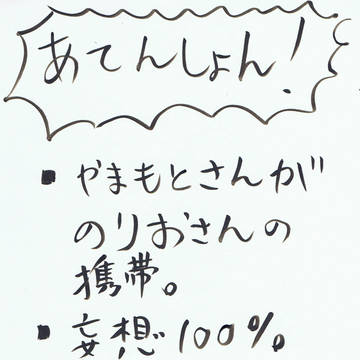 あてんしょん!
▪ やまもとさんが
のりおさんの
携帯。
▪ 妄想100%